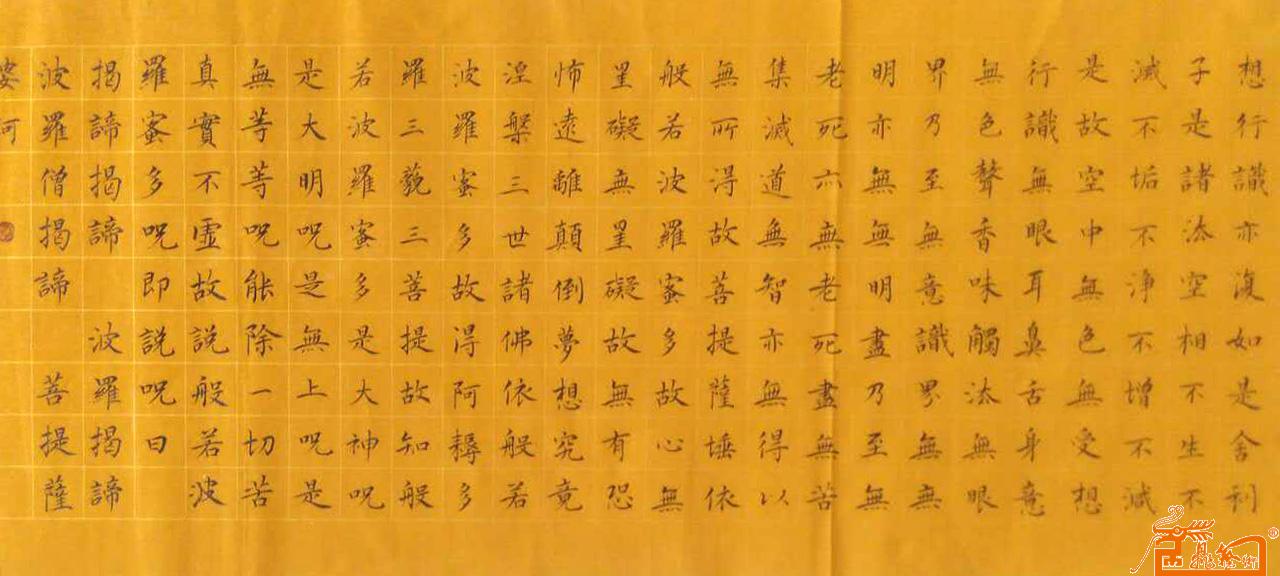 想行識亦復如是舍利
子是諸法空相不生不
滅不垢不淨不增不減
是故空中無色無受想
行識無眼耳鼻舌身意
無色聲香味觸法無眼
界乃至無意識界無無
明亦無無明盡乃至無
老死亦無老死盡無苦
集滅道無智亦無得以
無所得故菩提薩埵依
般若波羅蜜多故心無
罣礙無罣礙故無有恐
怖遠離顛倒夢想究竟
涅槃三世諸佛依般若
波羅蜜多故得阿耨多
羅三藐三菩提故知般
若波羅蜜多是大神呪
是大明呪是無上呪是
無等等呪能除一切苦
真實不虛故說般若波
羅蜜多呪即說呪曰
揭諦揭諦 波羅揭諦
波羅僧揭諦 菩提薩
婆訶